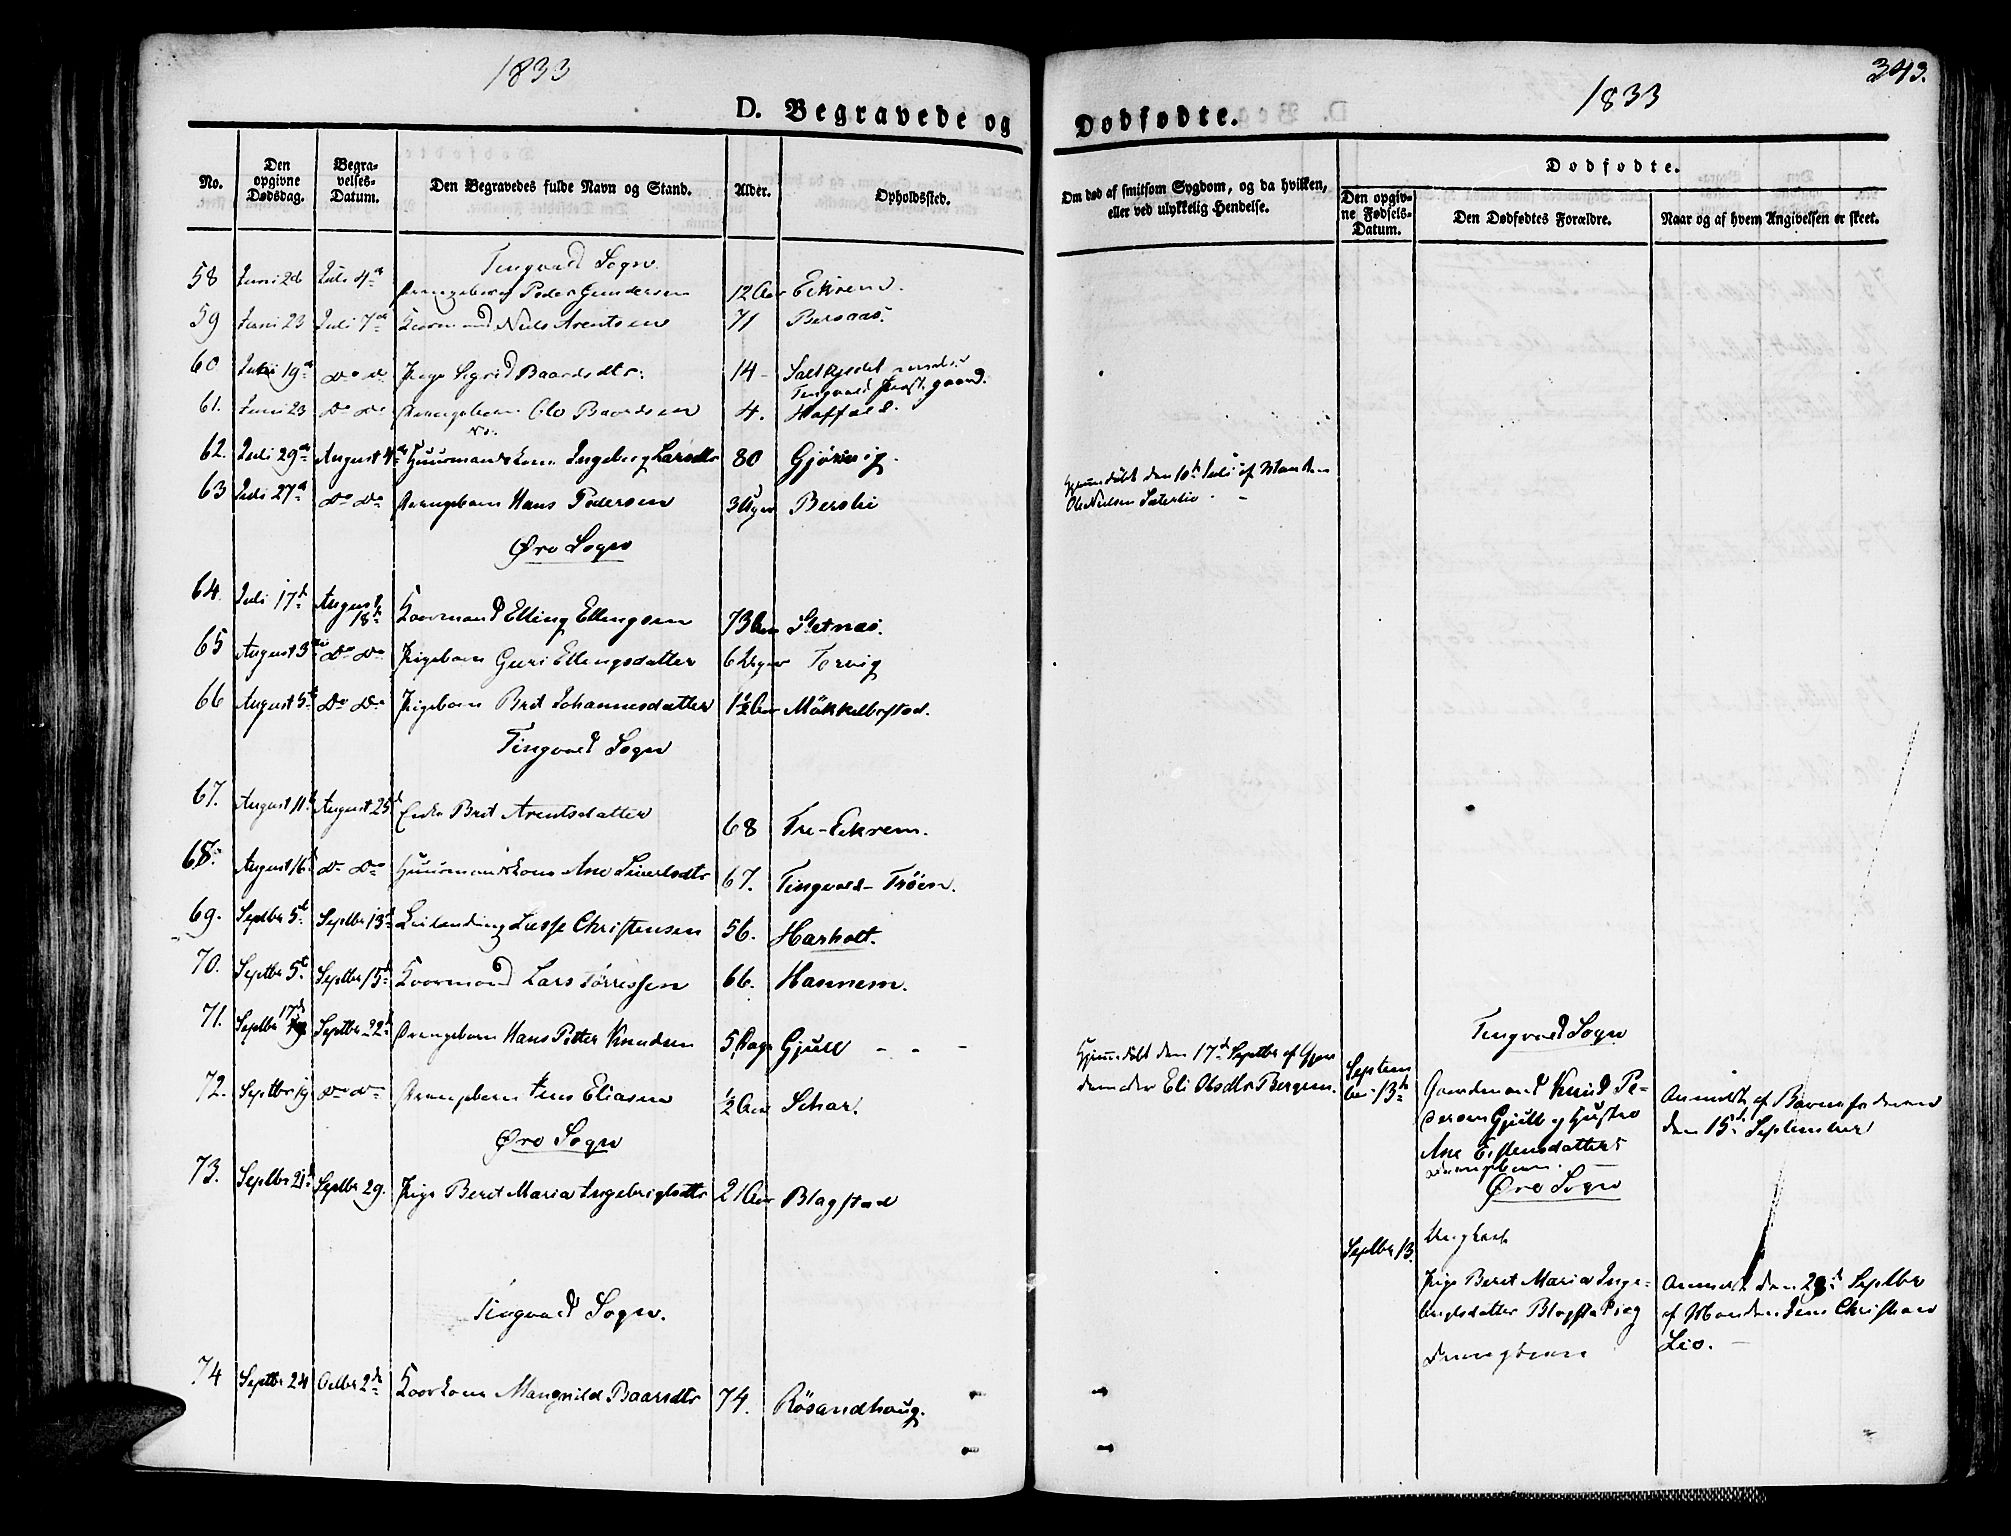 1833
D. Begravede og
No.
Den opgivne Dødsdag.
Begra-velses-Datum.
Den Begravedes fulde Navn og Stand.
Alder.
Opholdssted.
Tingvold Sogn
58 Juni 26 Juli 4de Drengebarn Peder Gundersen 12 Aar Eikrem.
59 Juni 23 Juli 7de Kaarmand Niels Arentsen 71 Bersaas.
60 Juni 19de Do Do Pige Sigrid Baardsdtr: 14
Tingvold Præstegaard.
61. Juni 23 Do Do Drengebarn Ole Baardsen 4. Haffald.
62. Juli 29de August 4de Huusmandskone Ingeborg Larsdtr 80 Gjørvig.
63 Juli 27de Do Do Drengebarn Hans Pedersen 3 Uger Berslie
Øre Sogn
64. Juli 17de August 18de Kaarmand Elling Ellingsen 73 Aar
65 August 3die Do Do Pigebarn Guri Ellingsdatter 6 Uger Torvig
66 August 5te Do Do Pigebarn Brit Johannesdatter 1½ Aar Møkkelbostad.
Tingvold Sogn
67. August 11te August 25de Enke Brit Arentsdatter 68 Tre-Eikrem.
68. August 16de Do Do Huusmandskone Ane Sivertsdtr 67. Tingvold-Trøen.
69. Septbr 5te Septbr 13de Leilending Lasse Christensen 56. Harholt.
70. Septbr 5te Septbr 15de Kaarmand Lars Tørressen 66. Hannem.
71. Septbr 17de Septbr 22de Drengebarn Hans Petter Knudsen 5 Dage Gjull - - -
72. Septbr 19 Do Do Drengebarn Jens Eliasen ½ Aar Schar.
Øre Sogn
73. Septbr 21de Septbr 29. Pige Beret Maria Ingebrigtsdtr 21 Aar Blagstad
Tingvold Sogn.
74 Septbr 24 Octbr 2de Kaarkone Mangnild Baardsdtr 74. Røsandhaug.
343.
1833
Dødfødte.
Om død af smitsom Sygdom, og da hvilken,
eller ved ulykkelig Hendelse.
Dødfødte.
Den opgiv-ne Fødsels-Datum.
Den Dødfødtes Forældre.
Naar og af hvem Angivelsen er skeet.
Hjemmedøbt den 10de Juli af Manden
Ole Nielsen Sæterlie.
Tingvold Sogn
Hjemmedøbt den 17de Septbr af Gjor-
demoder Eli Olsdtr Bergem.
Septem
ber 13de
Gaardmand Knud Pe-
dersen Gjull og Hustro
Ane Eistensdatters
Drengebarn.
Anmeldt af Barnefaderen
den 15de September
Øre Sogn
Septbr 13.
Ungkarl
Pige Beret Maria Inge-
brigtsdatter Blagstad
Drengebarn
Anmeldt den 28de Septbr
af Manden Jens Christian
Lio.